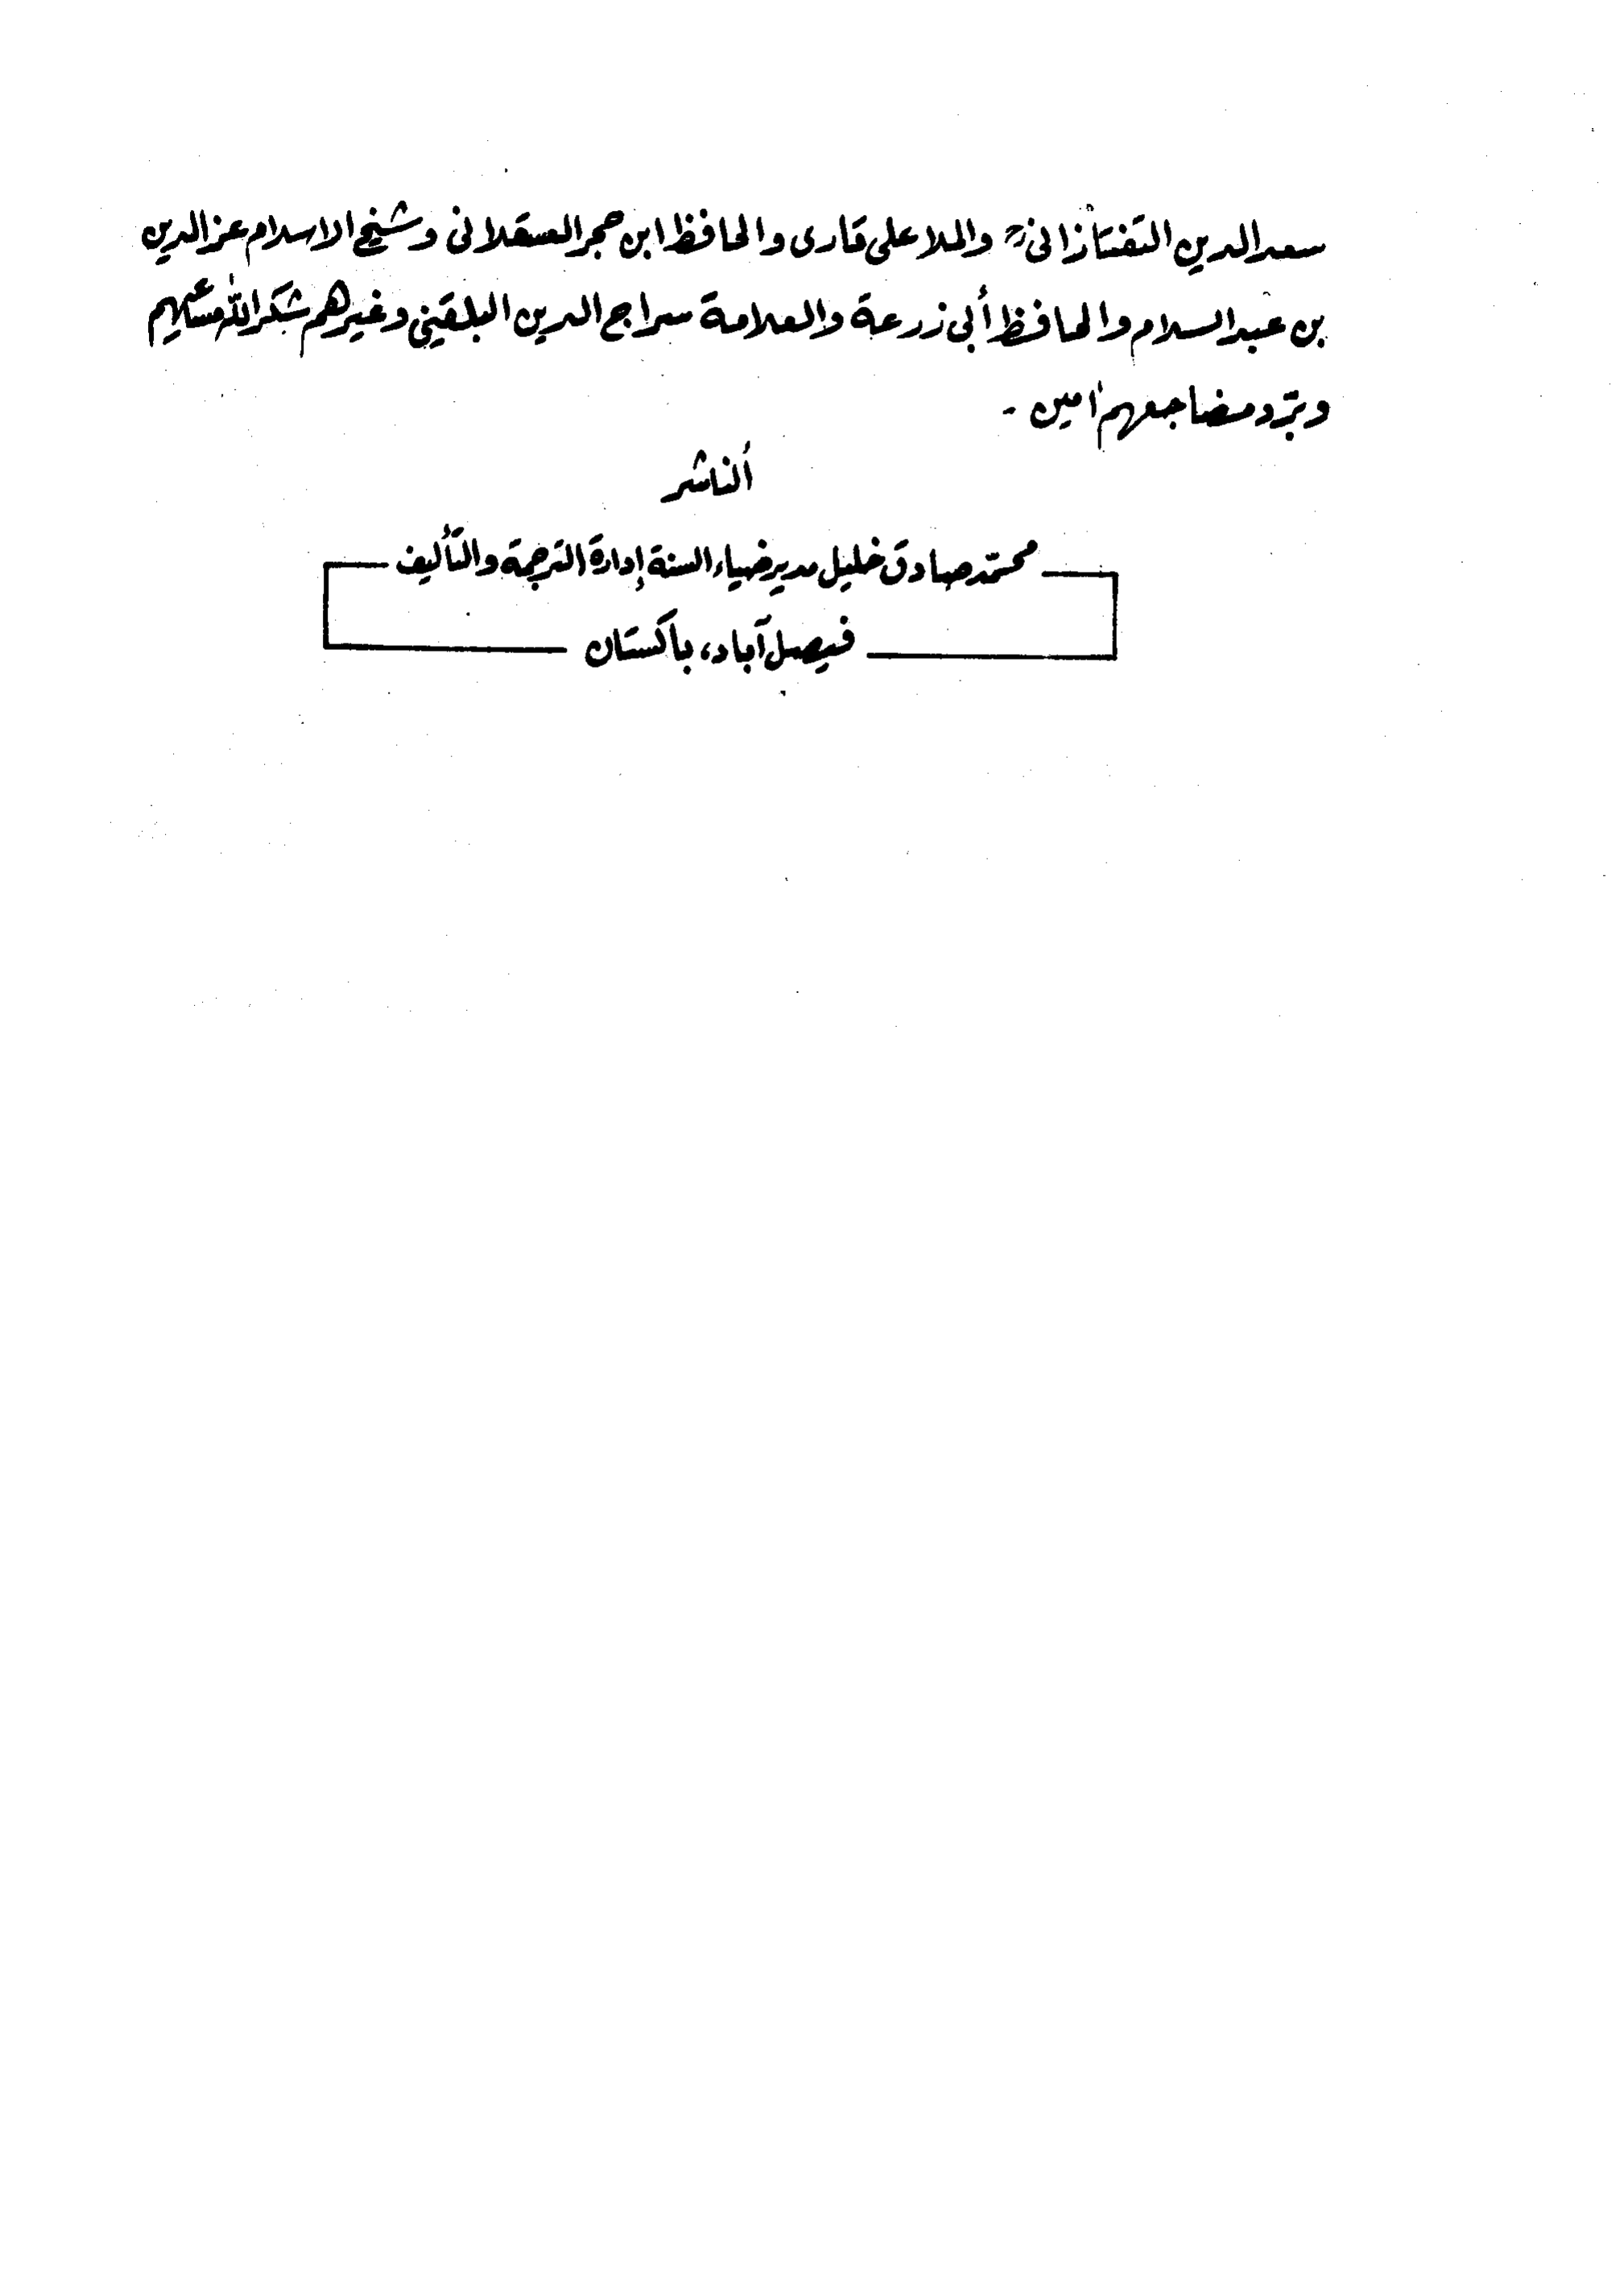 سعد الدين التفتازانىؒ والملا على قارى والحافظ ابن حجر العسقلانى وشيخ الاسلام عز الدين
بن عبد السلام والحافظ أبى زرعة والعلامة سراج الدين البلقينى وغيرهم شكر الله مساعيهم
وبرّد مضاجعهم اٰمين -
ألناشر
محمّد صادق خليل مدير ضياء السنة إدارة الترجمة والتأليف
فيصل آباد، باكستان